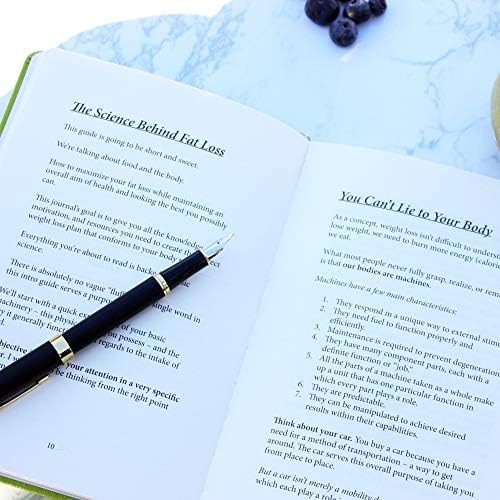 The Science Behind Fat Loss
This guide is going to be short and sweet.
We're talking about food and the body.
How to maximize your fat loss while maintaining an
overall aim of health and looking the best you possibly
can.
This journal's goal is to give you all the knowledge,
motivation, and resources you need to create the perfect
weight loss plan that conforms to your body
Everything you're about to read is backed
science.
There is absolutely no vague "fluff
this intro guide serves a purpose single word in
We'll start with a quick
machinery – this physic of your basic
it generally func you possess – and the
regards to the intake of
bjective
r, I w your attention in a very specific
be thinking from the right point
10
You Can't Lie to Your Body
As a concept, weight loss isn't difficult to unders
lose weight, we need to burn more energy (calorie
we eat.
What most people never fully grasp, realize, or rem
is that our bodies are machines.
Machines have a few main characteristics:
1. They respond in a unique way to external stim
2. They need fuel to function properly and
efficiently.
3. Maintenance is required to prevent degeneration
4. They have many component parts, each with a
definite function or "job."
5. All the parts of a machine taken as a whole make
up a unit that has one particular function in
which every part plays a role.
6. They are predictable.
7. They can be manipulated to achieve desired
results within their capabilities.
Think about your car. You buy a car because you have a
need for a method of transportation – a way to get
from place to place.
The car serves this overall purpose of taking you
But a car isn't merely a mobility d
which each play a role